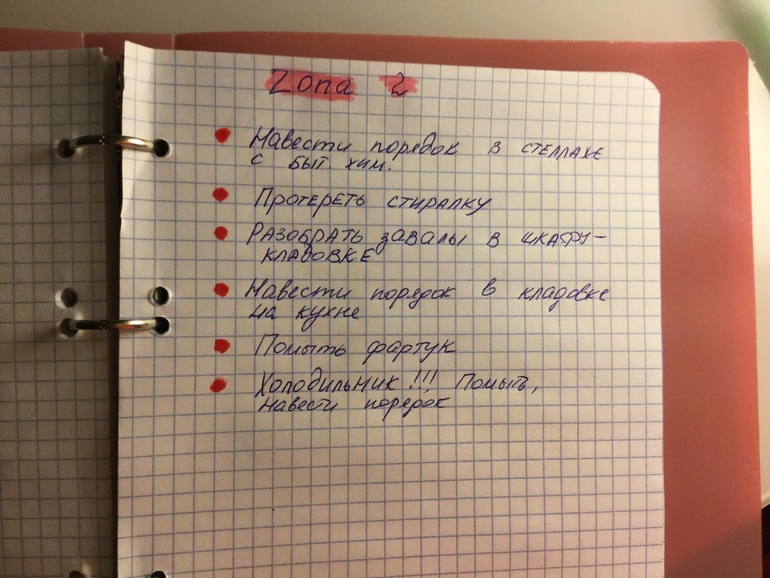 Zona 2
Навести порядок в стеллаже
с быт. хим.
Протереть стиралку
Разобрать завалы в шкафу-
кладовке
Навести порядок в кладовке
на кухне
Помыть фартук
Холодильник!!! Помыть,
навести порядок